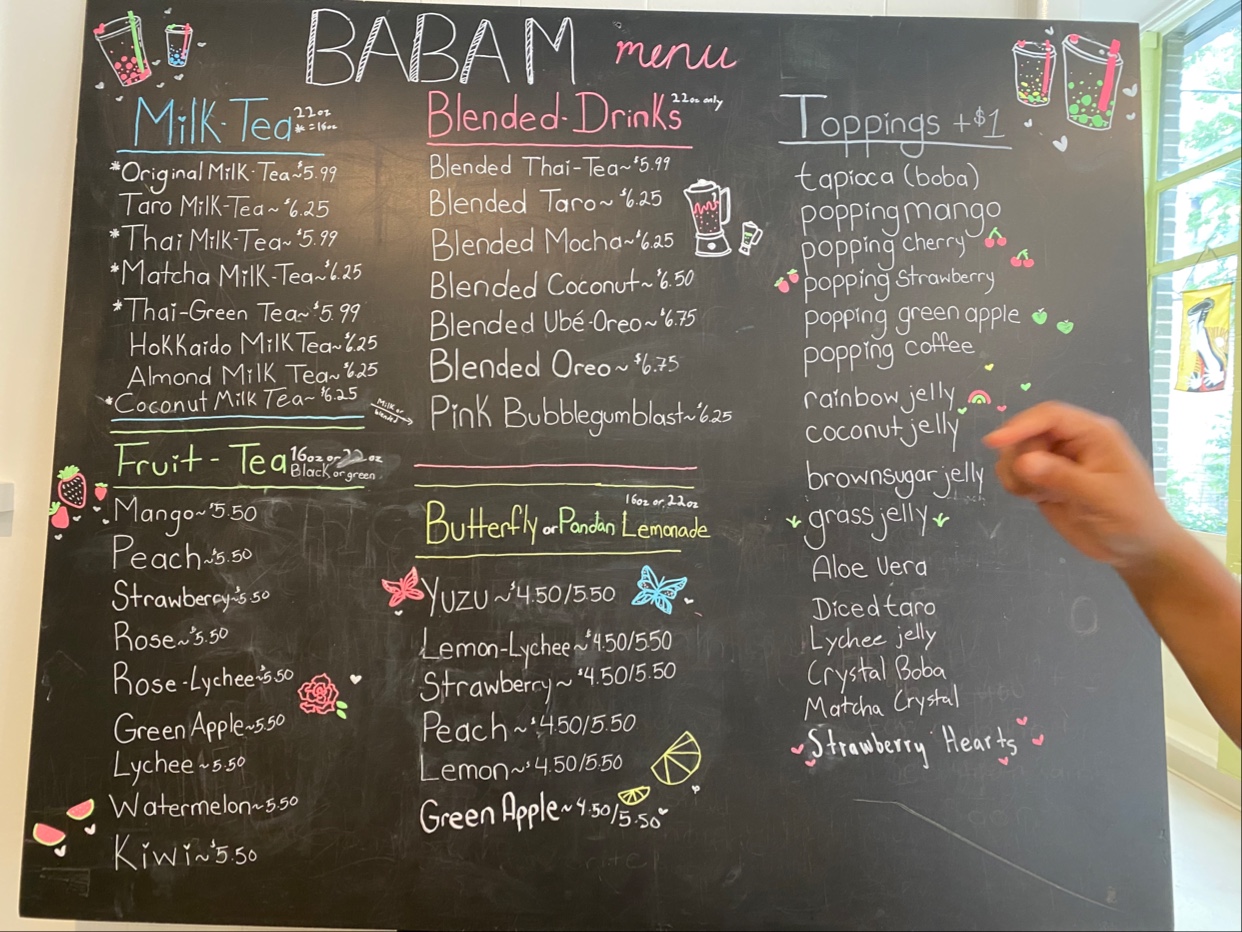 BABAM menu
Milk-Tea 22oz
* = 16oz
*Original Milk-Tea~$5.99
Taro Milk-Tea~$6.25
*Thai Milk-Tea~$5.99
*Matcha Milk-Tea~$6.25
*Thai-Green Tea~$5.99
Hokkaido Milk Tea~$6.25
Almond Milk Tea~$6.25
*Coconut Milk Tea~$6.25
Fruit-Tea 16oz or 22oz
Black or green
Mango~$5.50
Peach~$5.50
Strawberry~$5.50
Rose~$5.50
Rose-Lychee~$5.50
Green Apple~5.50
Lychee~5.50
Watermelon~5.50
Kiwi~$5.50
Blended-Drinks 22oz only
Blended Thai-Tea~$5.99
Blended Taro~$6.25
Blended Mocha~$6.25
Blended Coconut~$6.50
Blended Ubé-Oreo~$6.75
Blended Oreo~$6.75
Milk or
blended
Pink Bubblegumblast~$6.25
16oz or 22oz
Butterfly or Pandan Lemonade
Yuzu~$4.50/5.50
Lemon-Lychee~$4.50/5.50
Strawberry~$4.50/5.50
Peach~$4.50/5.50
Lemon~$4.50/5.50
Green Apple~4.50/5.50
Toppings +$1
tapioca (boba)
popping mango
popping cherry
popping strawberry
popping green apple
popping coffee
rainbow jelly
coconut jelly
brownsugar jelly
grass jelly
Aloe Vera
Diced taro
Lychee jelly
Crystal Boba
Matcha Crystal
Strawberry Hearts